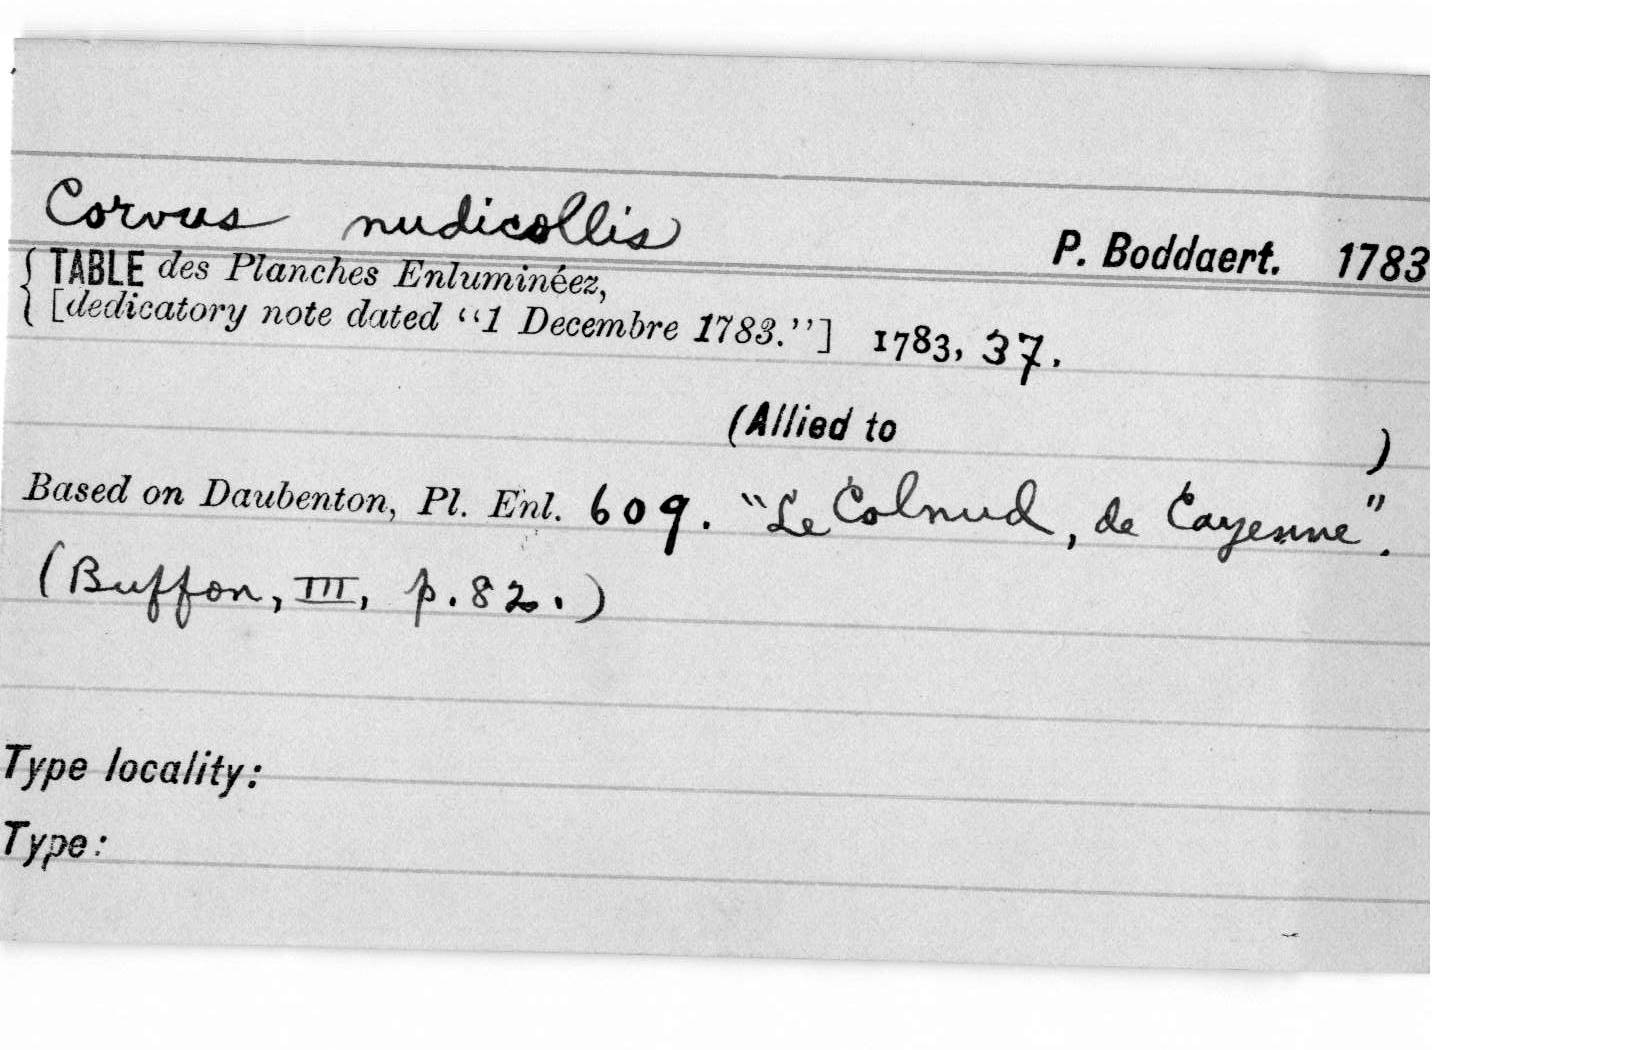 Corvus nudicollis P. Boddaert. 1783
TABLE des Planches Enluminéez,
[dedicatory note dated “1 Decembre 1783.”] 1783, 37.
(Allied to )
Based on Daubenton, Pl. Enl. 609. "Le Colnud, de Cayenne".
(Buffon, III, p. 82.)
Type locality:
Type: